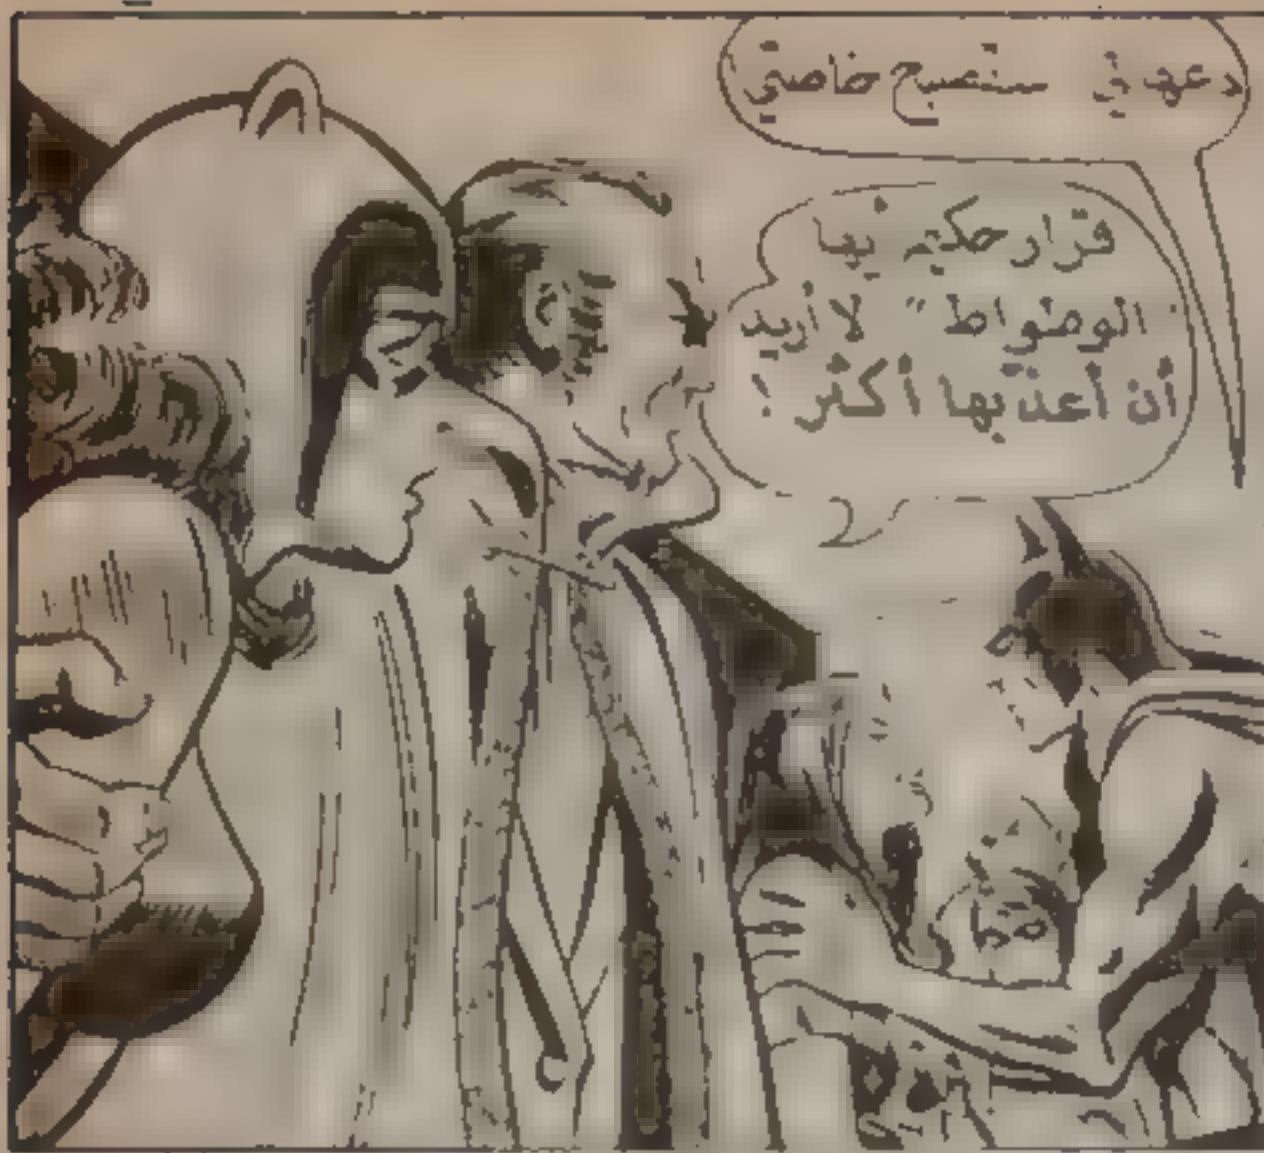 دعها لي ستصبح خاصتي
قرار حكيم أيها
الوطواط " لا أريد
أن أعذبها أكثر !